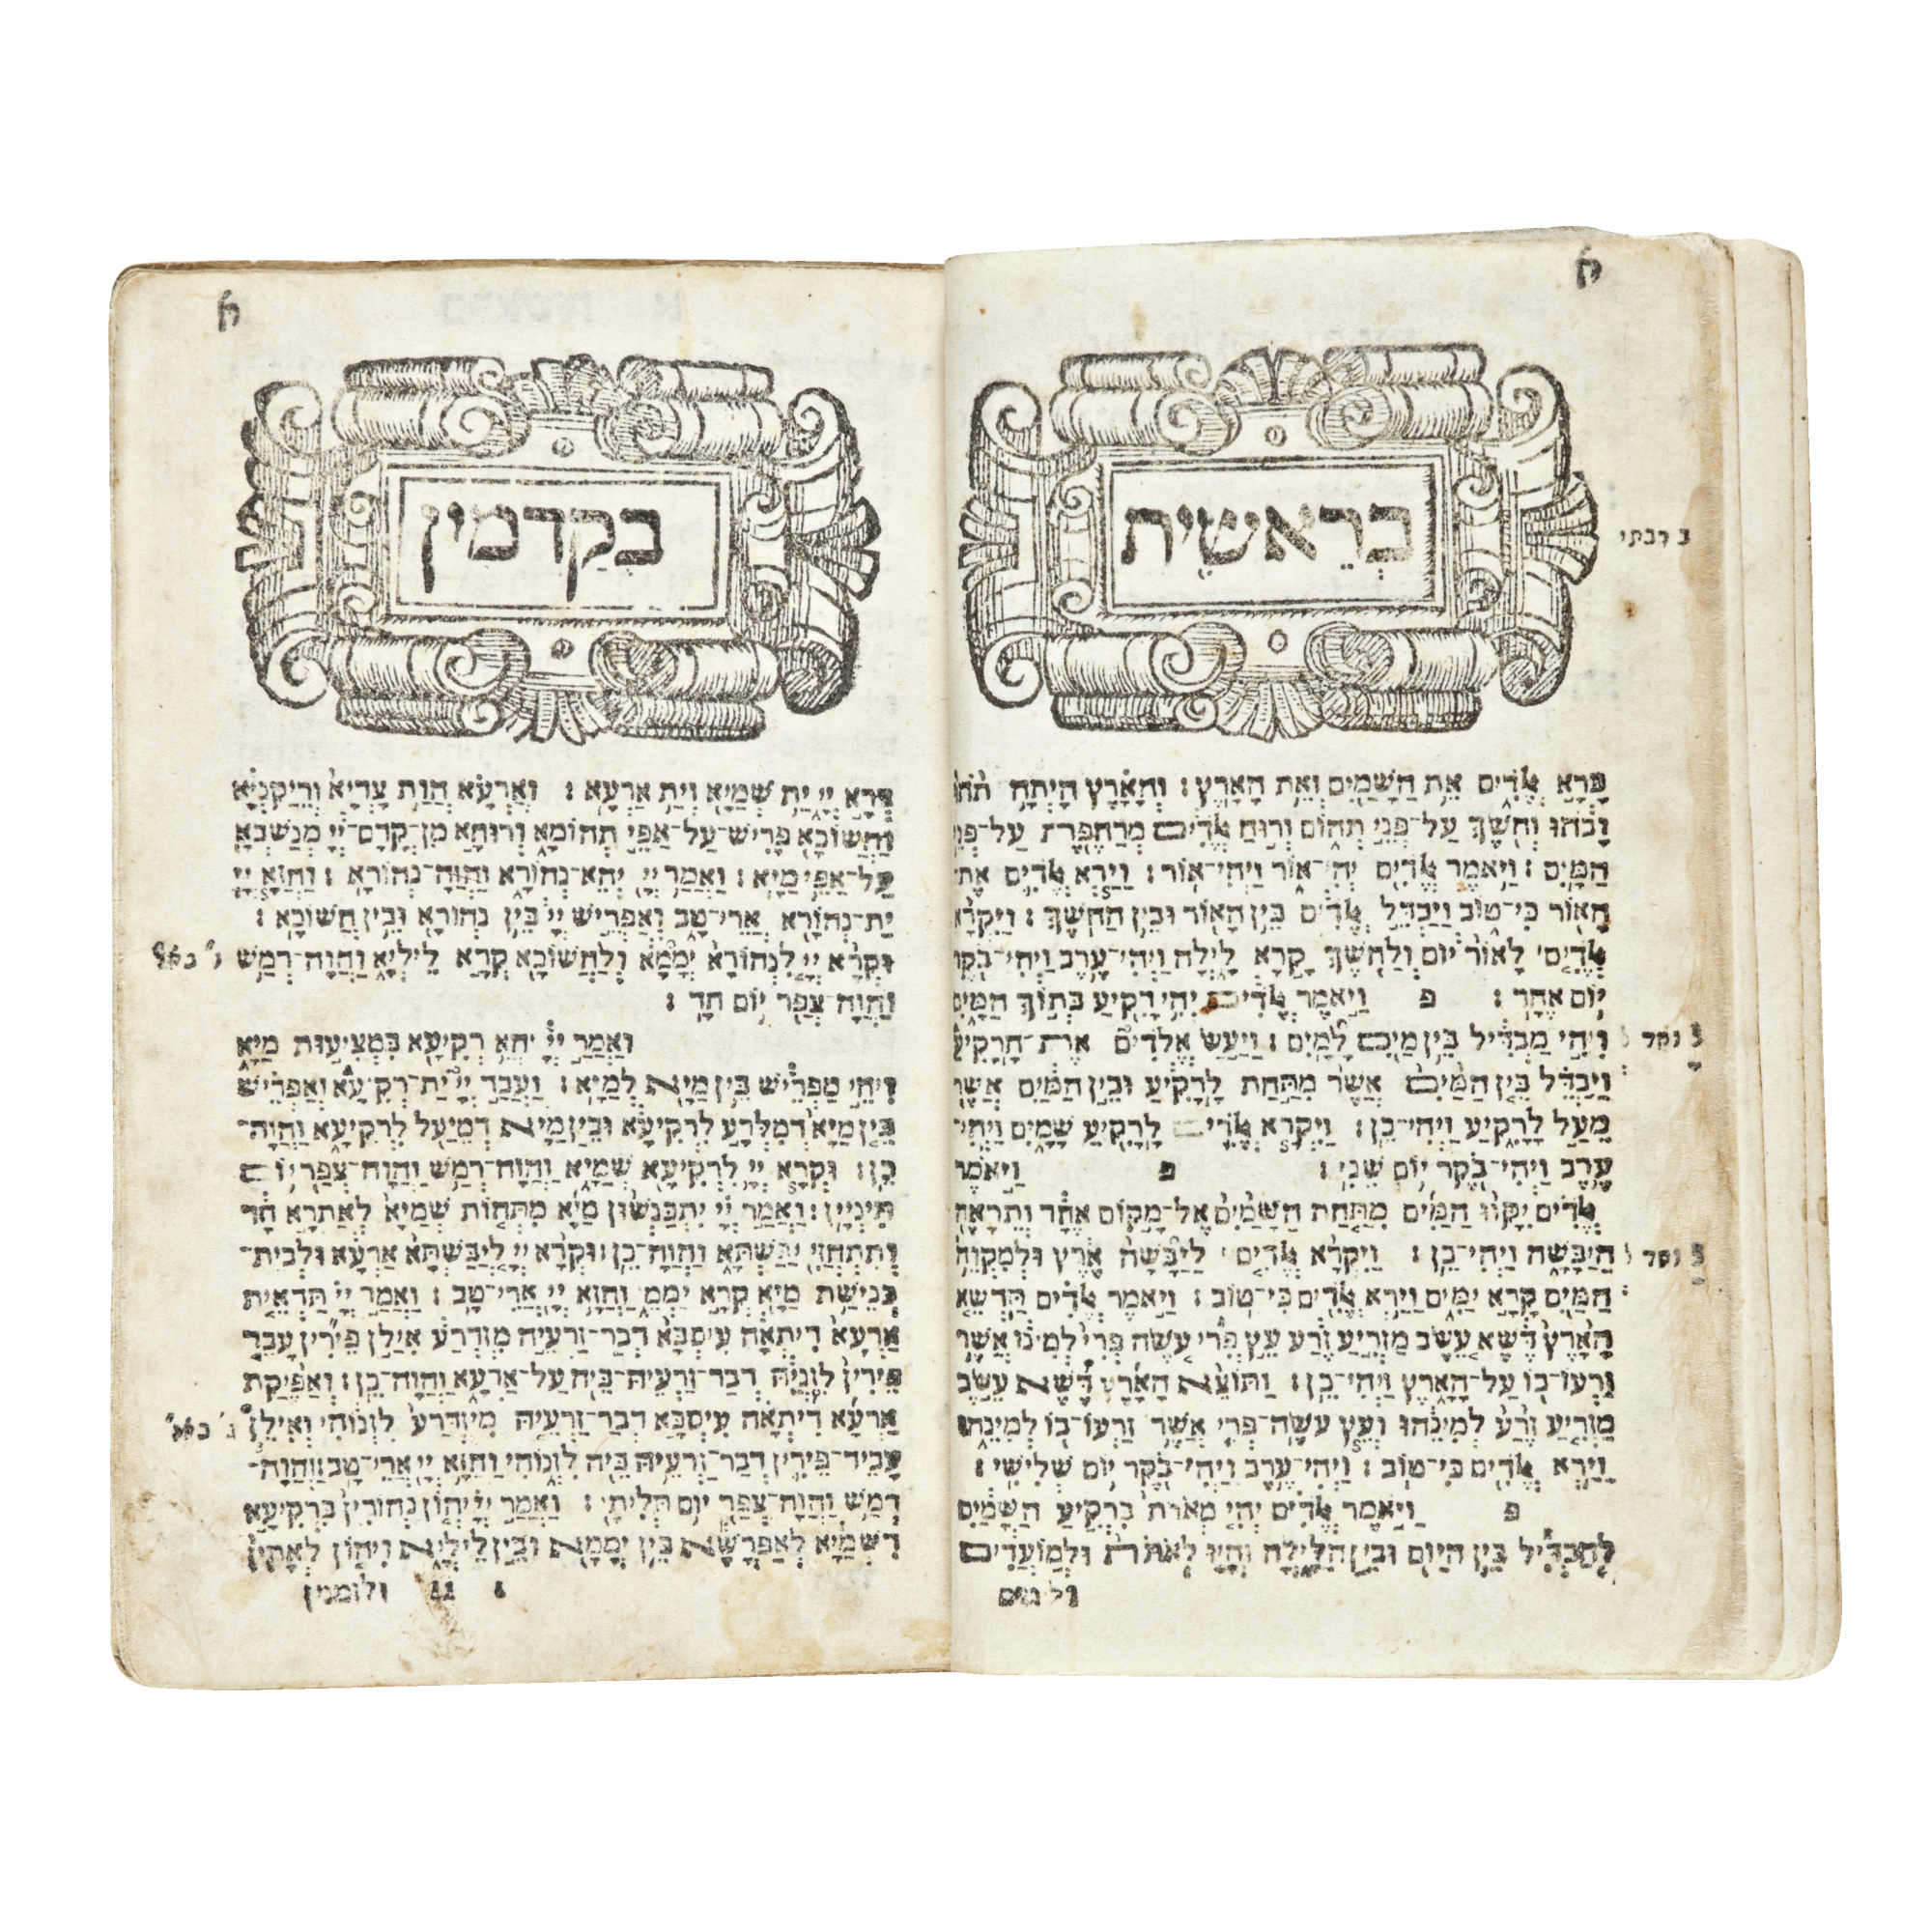 ח
בְּרֵאשִׁית
ב רבתי
בָּרָא אֱלֹדִים אֵת הַשָּׁמַיִם וְאֵת הָאָרֶץ: וְהָאָרֶץ הָיְתָה תֹהוּ
וָבֹהוּ וְחֹשֶׁךְ עַל־פְּנֵי תְהוֹם וְרוּחַ אֱלֹדִים מְרַחֶפֶת עַל־פְּנֵי
הַמָּיִם: וַיֹּאמֶר אֱלֹדִים יְהִי־אוֹר וַיְהִי־אוֹר: וַיַּרְא אֱלֹדִים אֶת־
הָאוֹר כִּי־טוֹב וַיַּבְדֵּל אֱלֹדִים בֵּין הָאוֹר וּבֵין הַחֹשֶׁךְ: וַיִּקְרָא
אֱלֹדִים לָאוֹר יוֹם וְלַחֹשֶׁךְ קָרָא לָיְלָה וַיְהִי־עֶרֶב וַיְהִי־בֹקֶר
יוֹם אֶחָד: פ וַיֹּאמֶר אֱלֹדִים יְהִי רָקִיעַ בְּתוֹךְ הַמָּיִם
וִיהִי מַבְדִּיל בֵּין מַיִם לָמָיִם: וַיַּעַשׂ אֱלֹדִים אֶת־הָרָקִיעַ
וַיַּבְדֵּל בֵּין הַמַּיִם אֲשֶׁר מִתַּחַת לָרָקִיעַ וּבֵין הַמַּיִם אֲשֶׁר
מֵעַל לָרָקִיעַ וַיְהִי־כֵן: וַיִּקְרָא אֱלֹדִים לָרָקִיעַ שָׁמָיִם וַיְהִי־
עֶרֶב וַיְהִי־בֹקֶר יוֹם שֵׁנִי: פ וַיֹּאמֶר
אֱלֹדִים יִקָּווּ הַמַּיִם מִתַּחַת הַשָּׁמַיִם אֶל־מָקוֹם אֶחָד וְתֵרָאֶה
הַיַּבָּשָׁה וַיְהִי־כֵן: וַיִּקְרָא אֱלֹדִים לַיַּבָּשָׁה אֶרֶץ וּלְמִקְוֵה
הַמַּיִם קָרָא יַמִּים וַיַּרְא אֱלֹדִים כִּי־טוֹב: וַיֹּאמֶר אֱלֹדִים תַּדְשֵׁא
הָאָרֶץ דֶּשֶׁא עֵשֶׂב מַזְרִיעַ זֶרַע עֵץ פְּרִי עֹשֶׂה פְּרִי לְמִינוֹ אֲשֶׁר
זַרְעוֹ־בוֹ עַל־הָאָרֶץ וַיְהִי־כֵן: וַתּוֹצֵא הָאָרֶץ דֶּשֶׁא עֵשֶׂב
מַזְרִיעַ זֶרַע לְמִינֵהוּ וְעֵץ עֹשֶׂה־פְּרִי אֲשֶׁר זַרְעוֹ־בוֹ לְמִינֵהוּ
וַיַּרְא אֱלֹדִים כִּי־טוֹב: וַיְהִי־עֶרֶב וַיְהִי־בֹקֶר יוֹם שְׁלִישִׁי:
פ וַיֹּאמֶר אֱלֹדִים יְהִי מְאֹרֹת בִּרְקִיעַ הַשָּׁמַיִם
לְהַבְדִּיל בֵּין הַיּוֹם וּבֵין הַלָּיְלָה וְהָיוּ לְאֹתֹת וּלְמוֹעֲדִים
נקד
נקד
בְּקַדְמִין
בְּרָא יְיָ יָת שְׁמַיָּא וְיָת אַרְעָא: וְאַרְעָא הֲוַת צָדְיָא וְרֵיקַנְיָא
וַחֲשׁוֹכָא פָּרִישׁ־עַל־אַפֵּי תְּהוֹמָא וְרוּחָא מִן־קֳדָם־יְיָ מְנַשְּׁבָא
עַל־אַפֵּי מַיָּא: וַאֲמַר יְיָ יְהֵא־נְהוֹרָא וַהֲוָה־נְהוֹרָא: וַחֲזָא יְיָ
יָת־נְהוֹרָא אֲרֵי־טָב וְאַפְרִישׁ יְיָ בֵּין נְהוֹרָא וּבֵין חֲשׁוֹכָא:
וּקְרָא יְיָ לִנְהוֹרָא יְמָמָא וְלַחֲשׁוֹכָא קְרָא לֵילְיָא וַהֲוָה־רְמַשׁ
וַהֲוָה־צְפַר יוֹם חָד:
וַאֲמַר יְיָ יְהֵא רְקִיעָא בִּמְצִיעוּת מַיָּא
וִיהֵי מַפְרֵישׁ בֵּין מַיָּא לְמַיָּא: וַעֲבַד יְיָ יָת־רְקִיעָא וְאַפְרֵישׁ
בֵּין מַיָּא דְמִלְּרַע לִרְקִיעָא וּבֵין מַיָּא דְמֵיעַל לִרְקִיעָא וַהֲוָה־
כֵן: וּקְרָא יְיָ לִרְקִיעָא שְׁמַיָּא וַהֲוָה־רְמַשׁ וַהֲוָה־צְפַר יוֹם
תִּינְיָין: וַאֲמַר יְיָ יִתְכַּנְשׁוּן מַיָּא מִתְּחוֹת שְׁמַיָּא לְאַתְרָא חָד
וְתִתְחֲזֵי יַבֶּשְׁתָּא וַהֲוָה־כֵן: וּקְרָא יְיָ לְיַבֶּשְׁתָּא אַרְעָא וּלְבֵית־
כְּנִישַׁת מַיָּא קְרָא יַמְמֵי וַחֲזָא יְיָ אֲרֵי־טָב: וַאֲמַר יְיָ תַּדְאֵית
אַרְעָא דִּיתְאָה עִיסְבָּא דְּבַר־זַרְעֵיהּ מִזְדְּרַע אִילַן פֵּירִין עָבֵד
פֵּירִין לִזְנֵיהּ דְּבַר־זַרְעֵיהּ־בֵּיהּ עַל־אַרְעָא וַהֲוָה־כֵן: וְאַפֵּיקַת
אַרְעָא דִּיתְאָה עִיסְבָּא דְּבַר־זַרְעֵיהּ מִיזְדְּרַע לִזְנוֹהִי וְאִילַן
עָבֵיד־פֵּירִין דְּבַר־זַרְעֵיהּ בֵּיהּ לִזְנוֹהִי וַחֲזָא יְיָ אֲרֵי־טָב: וַהֲוָה־
רְמַשׁ וַהֲוָה־צְפַר יוֹם תְּלִיתָי: וַאֲמַר יְיָ יְהוֹן נְהוֹרִין בִּרְקִיעָא
דִשְׁמַיָּא לְאַפְרָשָׁא בֵּין יְמָמָא וּבֵין לֵילְיָא וִיהוֹן לְאָתִין
ולזמנין